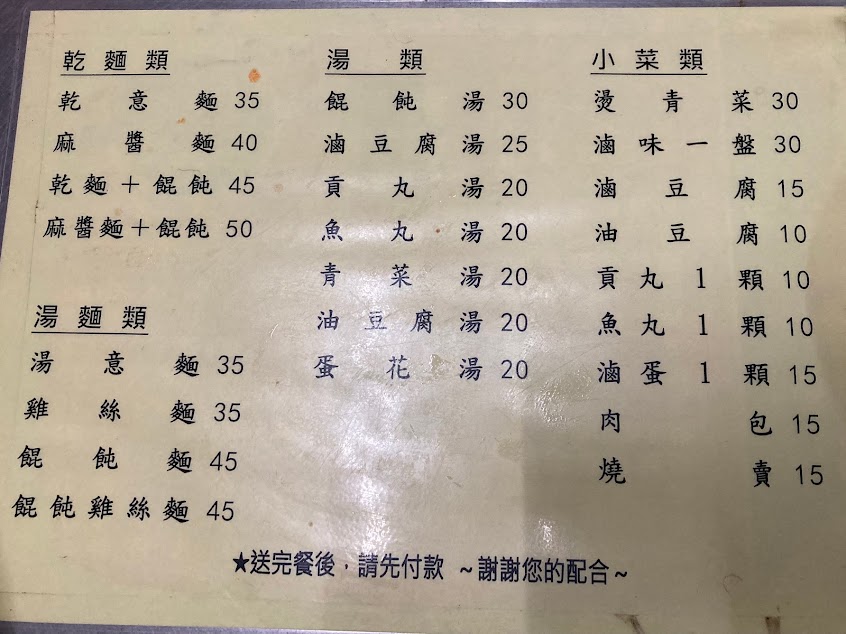 乾麵類
乾意麵 35
麻醬麵 40
乾麵＋餛飩 45
麻醬麵＋餛飩 50
湯麵類
湯意麵 35
雞絲麵 35
餛飩麵 45
餛飩雞絲麵 45
湯類
餛飩湯 30
滷豆腐湯 25
貢丸湯 20
魚丸湯 20
青菜湯 20
油豆腐湯 20
蛋花湯 20
小菜類
燙青菜 30
滷味一盤 30
滷豆腐 15
油豆腐 10
貢丸1顆 10
魚丸1顆 10
滷蛋1顆 15
肉包 15
燒賣 15
★送完餐後，請先付款 ~謝謝您的配合~